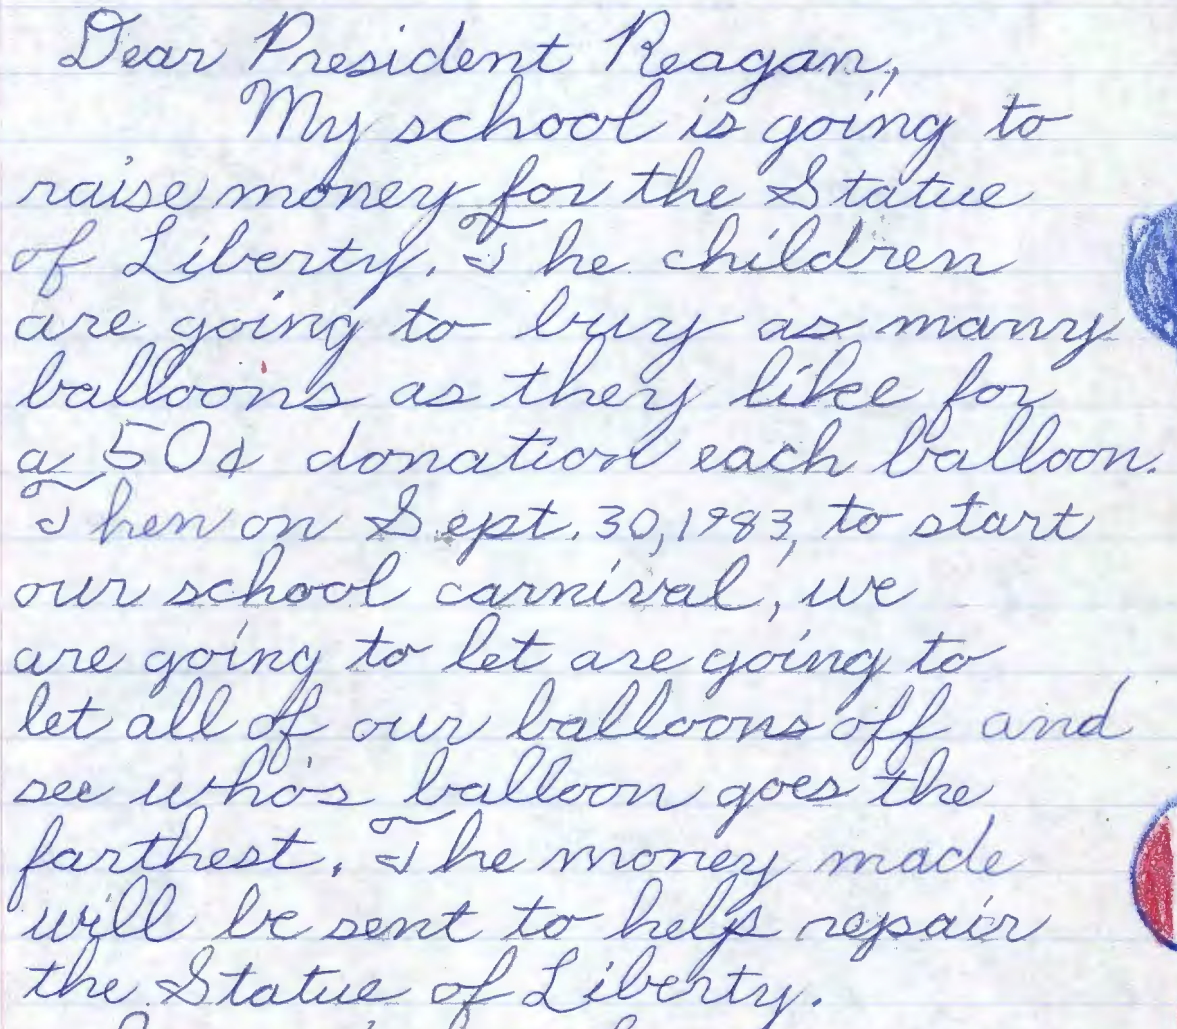 Dear President Reagan,
My school is going to
raise money for the Statue
of Liberty. The children
are going to buy as many
balloons as they like for
a 50¢ donation each balloon.
Then on Sept. 30, 1983, to start
our school carnival, we
are going to let are going to
let all of our balloons off and
see who's balloon goes the
farthest. The money made
will be sent to help repair
the Statue of Liberty.